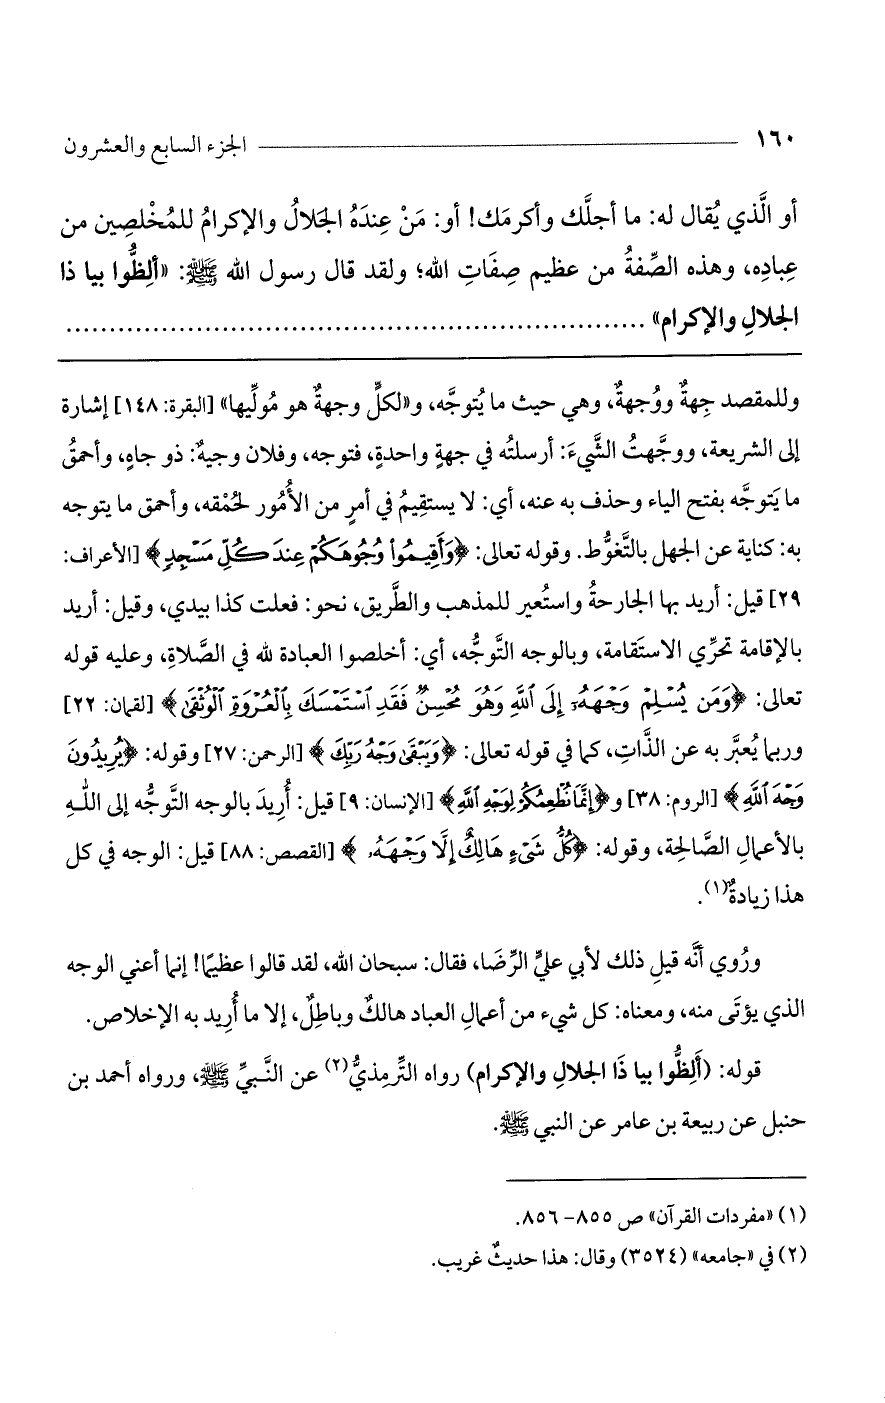 ١٦٠ الجزء السابع والعشرون
أو الَّذي يُقال له: ما أجلَّك وأكرمَك! أو: مَنْ عِندَهُ الجَلالُ والإكرامُ للمُخْلصِين من
عِبادِه، وهذه الصِّفةُ من عظيم صِفَاتِ الله؛ ولقد قال رسول الله ﷺ: «ألِظُّوا بيا ذا
الجلالِ والإكرام» ..................................................................
وللمقصد جِهةٌ ووُجهةٌ، وهي حيث ما يُتوجَّه، و«لكلٍّ وجهةٌ هو مُولِّيها» [البقرة: ١٤٨] إشارة
إلى الشريعة، ووجَّهتُ الشَّيءَ: أرسلتُه في جهةٍ واحدةٍ، فتوجه، وفلان وجيهٌ: ذو جاهٍ، وأحمقُ
ما يَتوجَّه بفتح الياء وحذف به عنه، أي: لا يستقِيمُ في أمرٍ من الأُمُور لحُمْقه، وأحمق ما يتوجه
به: كناية عن الجهل بالتَّغوُّط. وقوله تعالى: ﴿وَأَقِيمُوا۟ وُجُوهَكُمْ عِندَ كُلِّ مَسْجِدٍ﴾ [الأعراف:
٢٩] قيل: أريد بها الجارحةُ واستُعير للمذهب والطَّريق، نحو: فعلت كذا بيدي، وقيل: أريد
بالإقامة تحرِّي الاستَقامة، وبالوجه التَّوجُّه، أي: أخلصوا العبادة لله في الصَّلاةِ، وعليه قوله
تعالى: ﴿وَمَن يُسْلِمْ وَجْهَهُۥٓ إِلَى ٱللَّهِ وَهُوَ مُحْسِنٌ فَقَدِ ٱسْتَمْسَكَ بِٱلْعُرْوَةِ ٱلْوُثْقَىٰ﴾ [لقمان: ٢٢]
وربما يُعبَّر به عن الذَّاتِ، كما في قوله تعالى: ﴿وَيَبْقَىٰ وَجْهُ رَبِّكَ﴾ [الرحمن: ٢٧] وقوله: ﴿يُرِيدُونَ
وَجْهَ ٱللَّهِ﴾ [الروم: ٣٨] و﴿إِنَّمَا نُطْعِمُكُمْ لِوَجْهِ ٱللَّهِ﴾ [الإنسان: ٩] قيل: أُرِيدَ بالوجه التَّوجُّه إلى اللهِ
بالأعمالِ الصَّالحِة، وقوله: ﴿كُلُّ شَىْءٍ هَالِكٌ إِلَّا وَجْهَهُۥ﴾ [القصص: ٨٨] قيل: الوجه في كل
هذا زيادةٌ(١).
ورُوي أنَّه قيل ذلك لأبي عليٍّ الرِّضَا، فقال: سبحان الله، لقد قالوا عظيمًا! إنما أعني الوجه
الذي يؤتَى منه، ومعناه: كل شيء من أعمالِ العباد هالكٌ وباطِلٌ، إلا ما أُرِيد به الإخلاص.
قوله: (ألِظُّوا بيا ذَا الجلالِ والإكرام) رواه التِّرمذيُّ(٢) عن النَّبيِّ ﷺ، ورواه أحمد بن
حنبل عن ربيعة بن عامر عن النبي ﷺ.
(١) «مفردات القرآن» ص ٨٥٥-٨٥٦.
(٢) في «جامعه» (٣٥٢٤) وقال: هذا حديثٌ غريب.